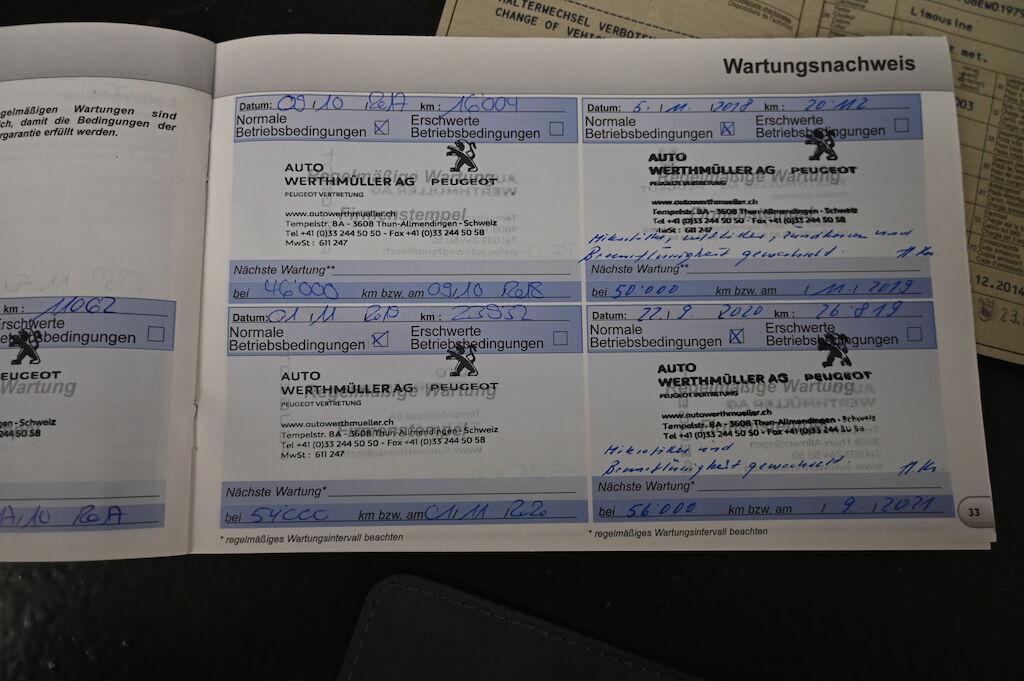 HALTERWECHSEL VERBOTEN
CHANGE OF VEHI
Limousine
met.
003
12.2014
23.
egelmäßigen Wartungen sind
ch, damit die Bedingungen der
rgarantie erfüllt werden.
km : 11062
Erschwerte
Betriebsbedingungen
EUGEOT
Wartung
gen - Schweiz
244 50 58
Wartungsnachweis
Datum: 09 10 2017 km : 16'004
Normale
Betriebsbedingungen
Erschwerte
Betriebsbedingungen
AUTO
WERTHMÜLLER AG PEUGEOT
PEUGEOT VERTRETUNG
Regelmäßige Wartung
Firmenstempel
www.autowerthmueller.ch
Tempelstr. 8A - 3608 Thun-Allmendingen - Schweiz
Tel +41 (0)33 244 50 50 - Fax +41 (0)33 244 50 58
MwSt : 611 247
Nächste Wartung**
bei 46'000 km bzw. am 09 10 2018
Datum: 5. 11. 2018 km : 20'112
Normale
Betriebsbedingungen
Erschwerte
Betriebsbedingungen
AUTO
WERTHMÜLLER AG PEUGEOT
PEUGEOT VERTRETUNG
Regelmäßige Wartung
www.autowerthmueller.ch
Tempelstr. 8A - 3608 Thun-Allmendingen - Schweiz
Tel +41 (0)33 244 50 50 - Fax +41 (0)33 244 50 58
MwSt : 611 247
Mikrofilter, Luftfilter, Zündkerzen und
Bremsflüssigkeit gewechselt.
Nächste Wartung**
bei 50'000 km bzw. am 11 2019
Datum: 01 11 2019 km :
Normale
Betriebsbedingungen
Erschwerte
Betriebsbedingungen
AUTO
WERTHMÜLLER AG PEUGEOT
PEUGEOT VERTRETUNG
Regelmäßige Wartung
Firmenstempel
www.autowerthmueller.ch
Tempelstr. 8A - 3608 Thun-Allmendingen - Schweiz
Tel +41 (0)33 244 50 50 - Fax +41 (0)33 244 50 58
MwSt : 611 247
Nächste Wartung*
bei 54000 km bzw. am 01 11 2020
* regelmäßiges Wartungsintervall beachten
Datum: 22. 9. 2020 km : 26'819
Normale
Betriebsbedingungen
Erschwerte
Betriebsbedingungen
AUTO
WERTHMÜLLER AG PEUGEOT
PEUGEOT VERTRETUNG
Regelmäßige Wartung
www.autowerthmueller.ch
Tempelstr. 8A - 3608 Thun-Allmendingen - Schweiz
Tel +41 (0)33 244 50 50 - Fax +41 (0)33 244 50 58
Mikrofilter und
Bremsflüssigkeit gewechselt.
Nächste Wartung*
bei 56'000 km bzw. am 9. 2021
* regelmäßiges Wartungsintervall beachten
33